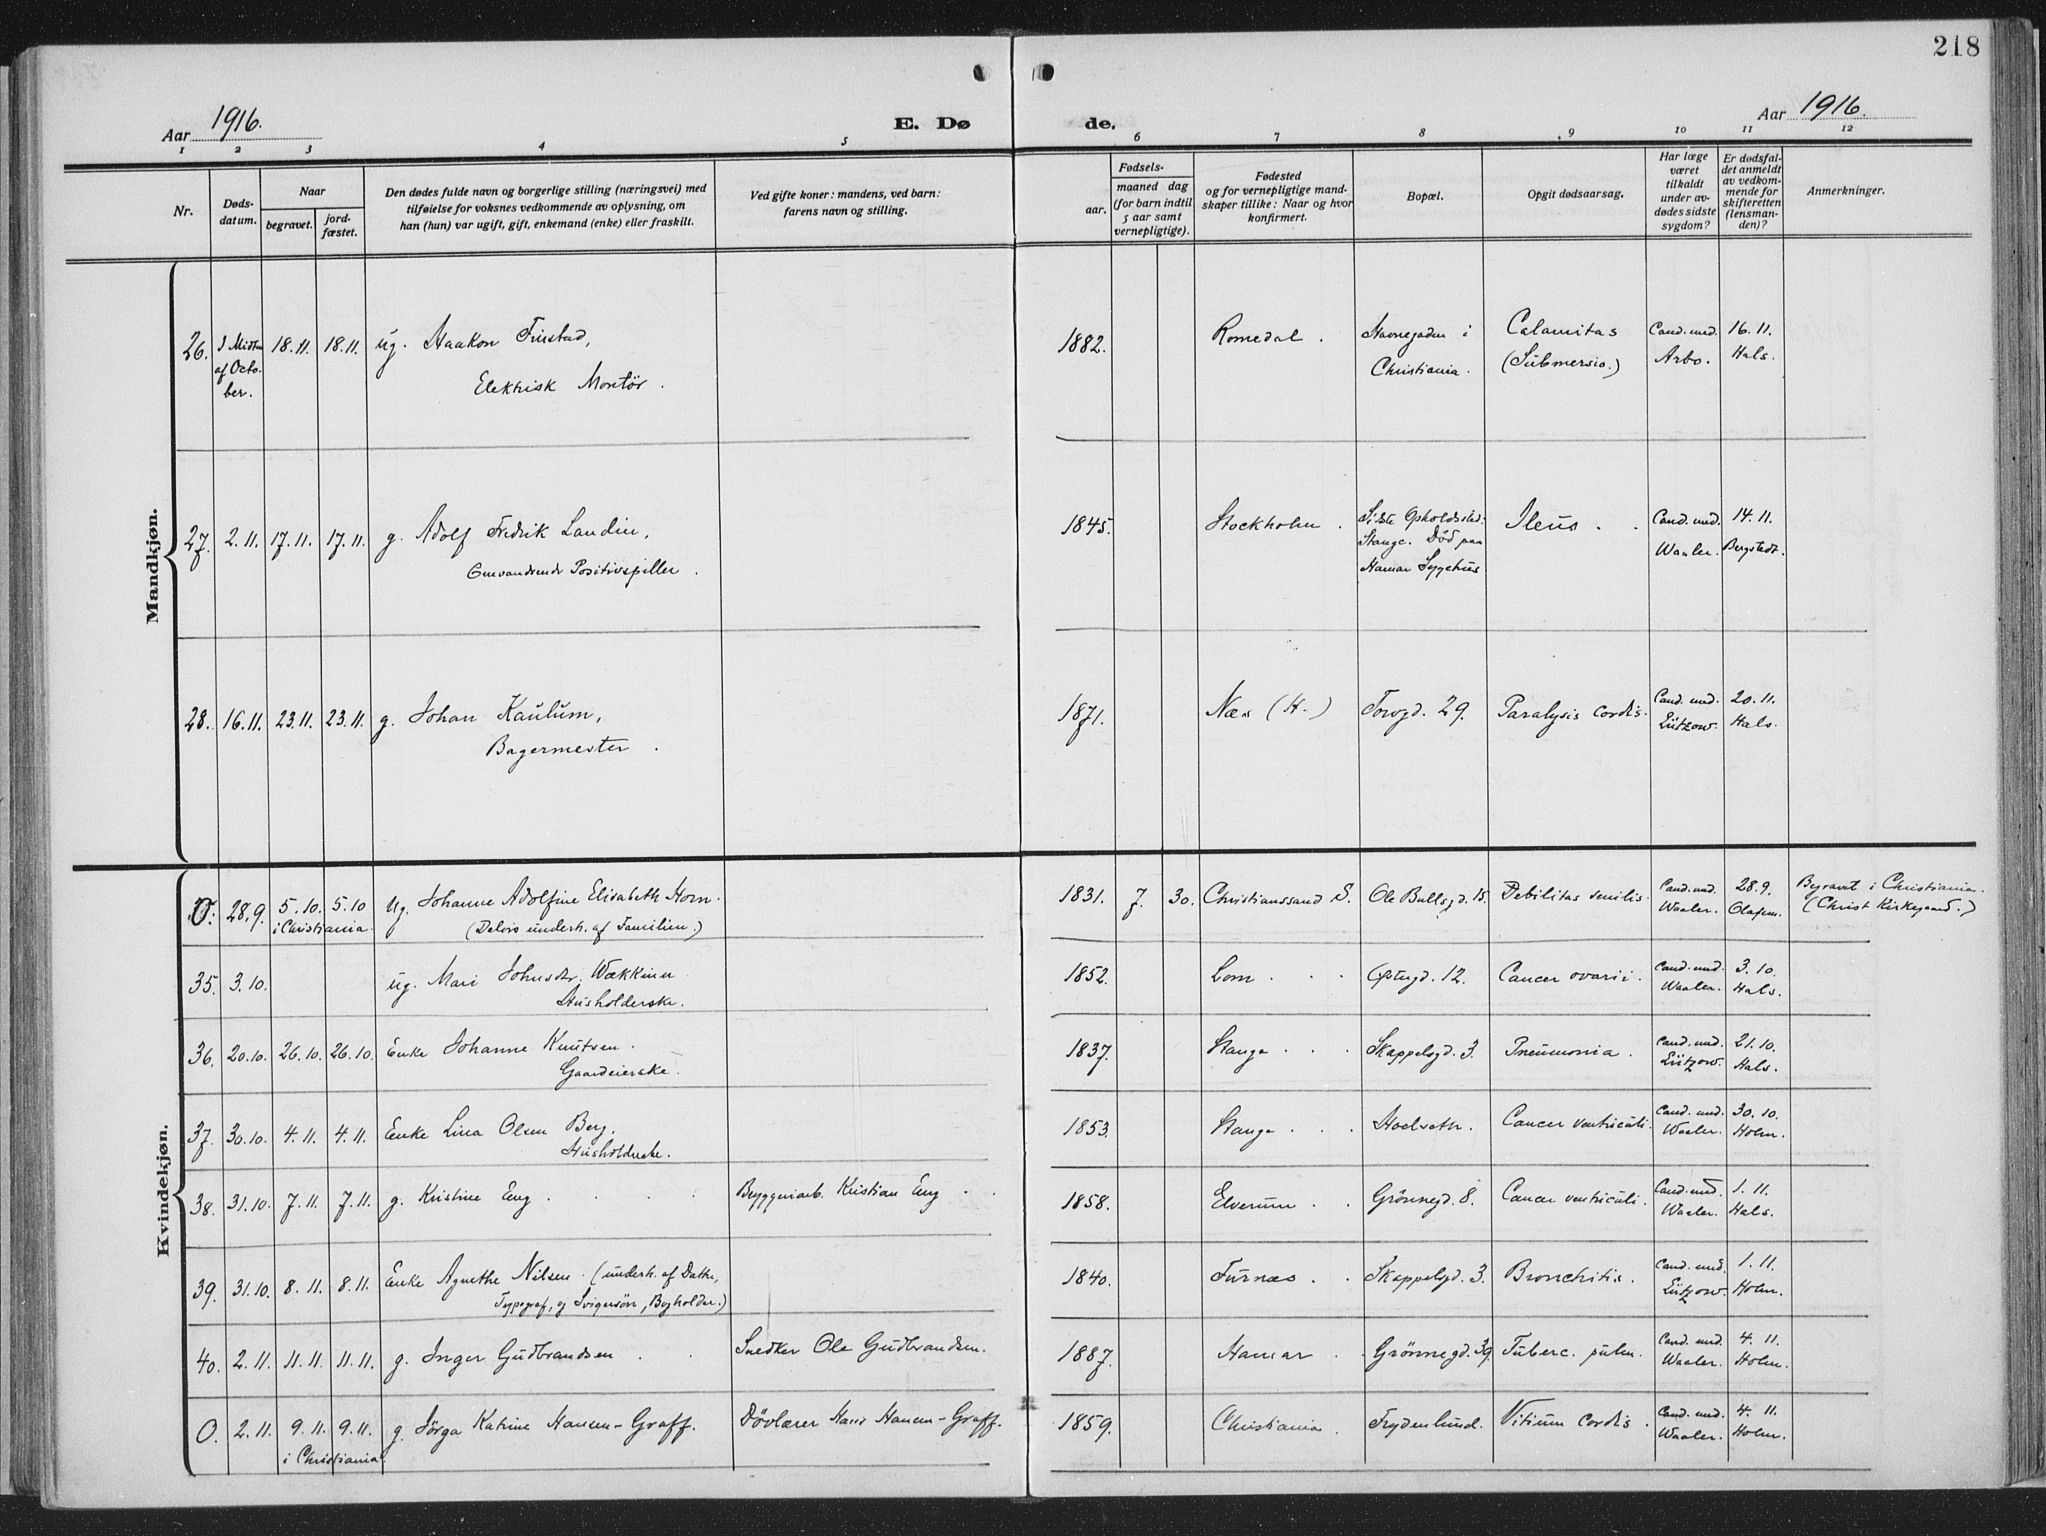 218
Aar 1916.
E. Dø de.
Aar 1916.
1 2 3 4 5 6 7 8 9 10 11 12
Nr.
Døds-
datum.
Naar
begravet.
jord-
fæstet.
Den dødes fulde navn og borgerlige stilling (næringsvei) med
tilføielse for voksnes vedkommende av oplysning, om
han (hun) var ugift, gift, enkemand (enke) eller fraskilt.
Ved gifte koner: mandens, ved barn:
farens navn og stilling.
Fødsels-
aar.
maaned dag
(for barn indtil
5 aar samt
vernepligtige).
Fødested
og for vernepligtige mand-
skaper tillike: Naar og hvor
konfirmert.
Bopæl.
Opgit dødsaarsag.
Har læge
været
tilkaldt
under av-
dødes sidste
sygdom?
Er dødsfal-
det anmeldt
av vedkom-
mende for
skifteretten
(lensman-
den)?
Anmerkninger.
Mandkjøn.
26. I Midten 18.11. 18.11. ug. Haakon Finstad, 1882. Romedal. Havnegaden i Calamitas Cand. med. 16.11.
af Octo- Elektrisk Montör. Christiania. (Submersio.) Arbo. Hals.
ber.
27. 2.11. 17.11. 17.11. g. Adolf Fredrik Landin, 1845. Stockholm. Sidste Opholdssted: Ileus. Cand. med. 14.11.
Omvandrende Positivspiller. Stange. Död paa Waaler. Bergstedt.
Hamar Sygehus.
28. 16.11. 23.11. 23.11. g. Johan Kaulum, 1871. Næs (H.) Torvgd. 29. Paralysis cordis. Cand. med. 20.11.
Bagermester. Lützow. Hals.
Kvindekjøn.
0. 28.9. 5.10. 5.10 Ug. Johanne Adolfine Elisabeth Horn. 1831. 7. 30. Christianssand S. Ole Bullsgd. 15. Debilitas senilis. Cand. med. 28.9. Begravet i Christiania.
i Christiania. (Delvis underh. af Familien.) Waaler. Olafsen. (Christ Kirkegaard.)
35. 3.10. ug. Mari Johnsdtr. Wækkinn 1852. Lom Östregd. 12. Cancer ovarii. Cand. med. 3.10.
Husholderske. Waaler. Hals.
36. 20.10. 26.10. 26.10. Enke Johanne Knutsen. 1837. Stange Skappelsgd. 3. Pneumonia. Cand. med. 21.10.
Gaardeierske. Lützow. Hals.
37. 30.10. 4.11. 4.11. Enke Lina Olsen Berg. 1853. Stange Hoelseth. Cancer ventriculi. Cand. med. 30.10.
Husholderske. Waaler. Holm.
38. 31.10. 7.11. 7.11. g. Kristine Eng Bryggeriarb. Kristian Eng 1858. Elverum Grönnegd. 8. Cancer ventriculi. Cand. med. 1.11.
Waaler. Hals.
39. 31.10. 8.11. 8.11. Enke Agnethe Nilsen. (underh. af Datter, 1840. Furnæs Skappelsgd. 3. Bronchitis. Cand. med. 1.11.
Typograf, og Svigersön, Bogholder.) Lützow. Holm.
40. 2.11. 11.11. 11.11. g. Inger Gudbrandsen Snedker Ole Gudbrandsen. 1887. Hamar Grönnegd. 39. Tuberc. pulm. Cand. med. 4.11.
Waaler. Holm.
0. 2.11. 9.11. 9.11. g. Jörga Katrine Hansen-Graff. Dövlærer Hans Hansen-Graff. 1859. Christiania. Frydenlund. Vitium cordis. Cand. med. 4.11.
i Christiania. Waaler. Holm.